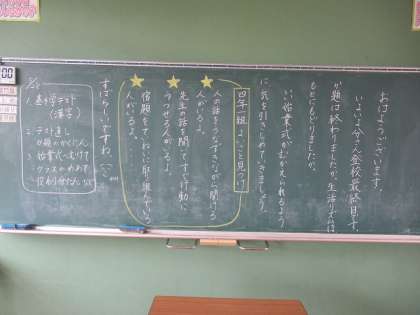 おはようございます。
いよいよ分さん登校最終日です。
か題は終わりましたか。生活リズムは
もとにもどりましたか。
いい始業式がむかえられるよう
に気を引きしめていきましょう。
四年一組 よいこと見つけ
人の話をうなずきながら聞ける
人がいるよ。
先生の話を聞いてすぐ行動に
うつせる人がいるよ。
宿題をていねいに取り組んでいる
人がいるよ。
すばらしいですね
1. 基礎テスト
(漢字)
2. テスト直し
か題のかくにん
3. 始業式へむけて
クラスのめあて
役わり分たん など
00